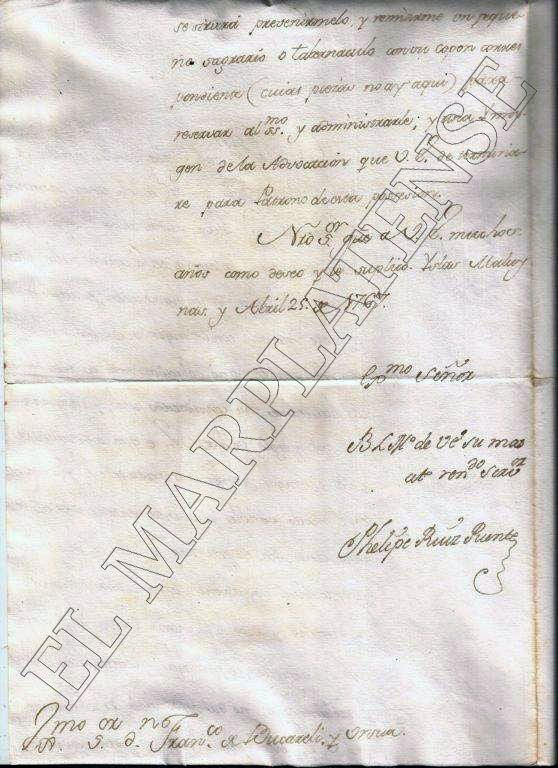 se servirá prevenirmelo, y remitirme un peque
ño sagrario o tabernaculo con su copon corres
pondiente (cuias piezas no ay aqui) para
reservar al SS.mo y administrarle; y una Ymà
gen de la Advocacion que V.E. determina
re para Patrono de esta
Ntro S.or que a V.E. muchos
años como deseo y le suplico. Yslas Malui
nas, y Abril 25. de 1767.
Exmo Señor
B L M.o de V.E. su mas
at.o ren.do Serv.or
Phelipe Ruiz Puente
Exmo S.or D. Fran.co de Bucareli, y Ursua.
EL MARPLATENSE